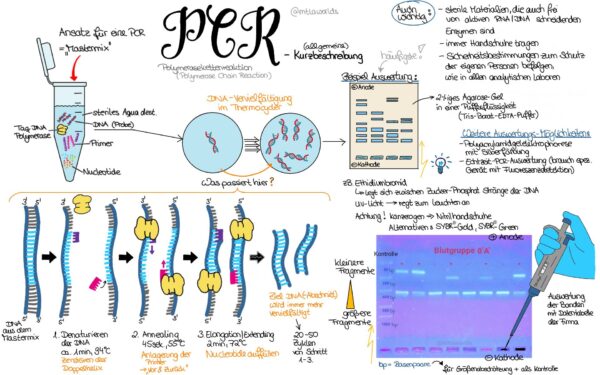 PCR
@mtlaworlds
Polymerasekettenreaktion
(Polymerase Chain Reaction)
- (allgemeine)
Kurzbeschreibung
Auch
wichtig:
- sterile Materialien, die auch frei
von aktiven RNA/DNA schneidenden
Enzymen sind
- immer Handschuhe tragen
- Sicherheitsbestimmungen zum Schutz
der eigenen Personen befolgen,
wie in allen analytischen Laboren
Ansatz für eine PCR
= "Mastermix"
steriles Aqua dest.
DNA (Probe)
Taq DNA
Polymerase
Primer
Nucleotide
DNA-Vervielfältigung
im Thermocycler
Was passiert hier?
häufigste!
Beispiel Auswertung:
⊕ Anode
⊖ Kathode
2%iges Agarose-Gel
in einer Pufferflüssigkeit
(Tris-Borat-EDTA-Puffer)
Weitere Auswertungs-Möglichkeiten:
- Polyacrylamidgelelektrophorese
mit Silberfärbung
- Echtzeit-PCR-Auswertung (brauch spez.
Gerät mit Fluoreszenzdetektion)
zB Ethidiumbromid
↳ legt sich zwischen Zucker-Phosphat Stränge der DNA
UV-Licht → regt zum Leuchten an
Achtung! Kanzerogen → Nitrilhandschuhe
Alternativen: SYBR®-Gold, SYBR® Green
3' 5' 3' 5' 3' 5' 3' 5'
DNA
aus dem
Mastermix
1. Denaturieren
der DNA
ca. 1min, 94°C
Zerstören der
Doppelhelix
2. Annealing
45sek, 55°C
Anlagerung der
Primer
→ "Vor & Zurück"
3. Elongation/Extending
2min, 72°C
Nucleotide auffüllen
Ziel: DNA(-Abschnitt)
wird immer mehr
vervielfältigt
20-50
Zyklen
von Schritt
1-3.
kleinere
Fragmente
größere
Fragmente
⊕ Anode
Kontrolle
Blutgruppe 0 'A'
Kontrolle
⊖ Kathode
bp = Basenpaare
für Größenabschätzung + als Kontrolle
Auswertung
der Banden
mit Datentabelle
der Firma